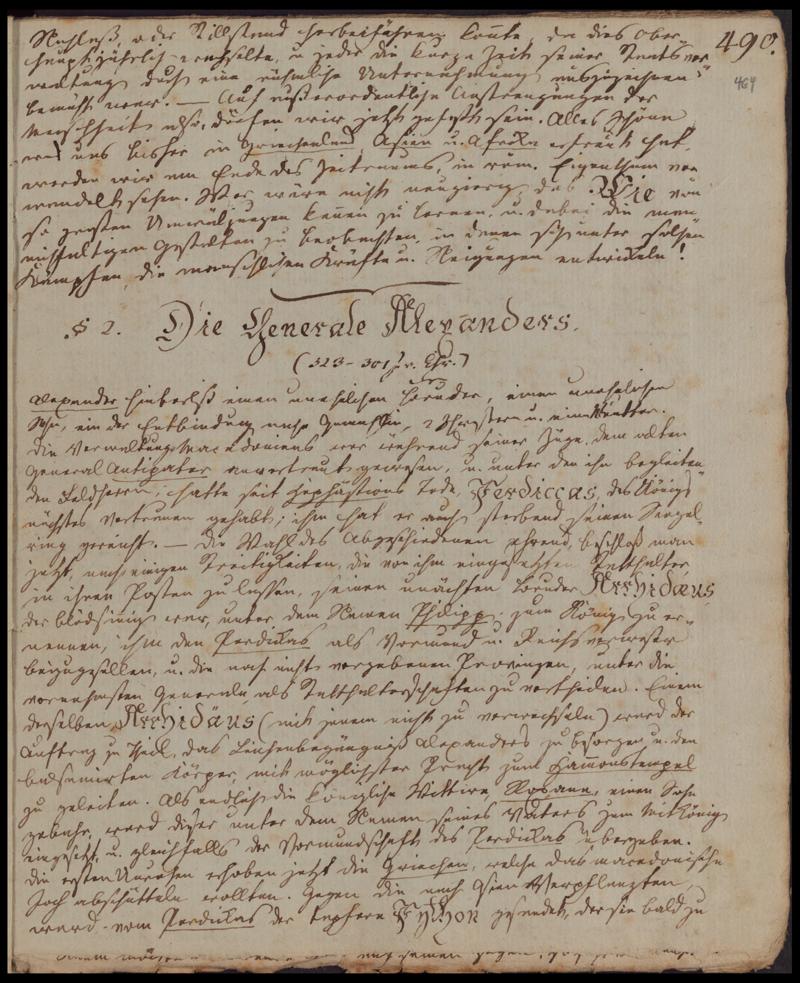 490.
464
Nachlaß, oder Stillstand herbeiführen konnte, da dies Ober-
haupt jährlich wechselte, u. jeder die kurze Zeit seiner Staatsver-
waltung durch eine rühmliche Unternehmung auszuzeichnen
bemüht war. — Auf außerordentliche Anstrengungen der
Menschheit also, dürfen wir jetzt gefaßt sein. Alles Schöne
was uns bisher in Griechenland, Asien u. Afrika erfreut hat,
werden wir am Ende des Zeitraums, in röm. Eigenthum ver-
wandelt sehen. Wer wäre nicht neugierig, das Wie von
so großen Umwälzungen kennen zu lernen, u. dabei die man-
nichfaltigen Gestalten zu beobachten, in denen sich unter solchen
Kämpfen, die menschlichen Kräfte u. Neigungen entwickeln!
§ 2. Die Generale Alexanders.
(323-301 v. Chr.)
Alexander hinterließ einen unehelichen Bruder, einen unehelichen
Sohn, ein der Entbindung nahe Gemahlin, 2 Schwestern u. eine Mutter.
Die Verwaltung Macedoniens war während seiner Züge, dem alten
General Antipater anvertraut gewesen, u. unter den ihn begleiten-
den Feldherrn, hatte seit Hephästions Tode, Perdiccas, des Königs
nächstes Vertrauen gehabt; ihm hat er auch sterbend seinen Siegel-
ring gereicht. — Die Wahl des Abgeschiedenen ehrend, beschloß man
jetzt, nach einigen Streitigkeiten, die von ihm eingesetzten Statthalter
in ihren Posten zu lassen, seinen unächten Bruder Arrhidäus
der blödsinnig war, unter dem Namen Philipp, zum König zu er-
nennen, ihm den Perdikas als Vormund u. Reichsverweser
beizugesellen, u. die noch nicht vergebenen Provinzen, unter die
vornehmsten Generale, als Statthalterschaften zu vertheilen. Einem
derselben, Arrhidäus (mit jenem nicht zu verwechseln) ward der
Auftrag zu Theil, das Leichenbegängniß Alexanders zu besorgen u. den
balsamirten Körper, mit möglichster Pracht zum Hammonstempel
zu geleiten. Als endlich die königliche Wittwe, Roxane, einen Sohn
gebahr, ward dieser unter dem Namen seines Vaters zum Mitkönig
eingesetzt, u. gleichfalls der Vormundschaft des Perdikas übergeben.
Die ersten Unruhen erhoben jetzt die Griechen, welche das macedonische
Joch abschütteln wollten. Gegen die nach Asien Verpflanzten,
ward vom Perdikas der tapfere Python gesendet, der sie bald zu